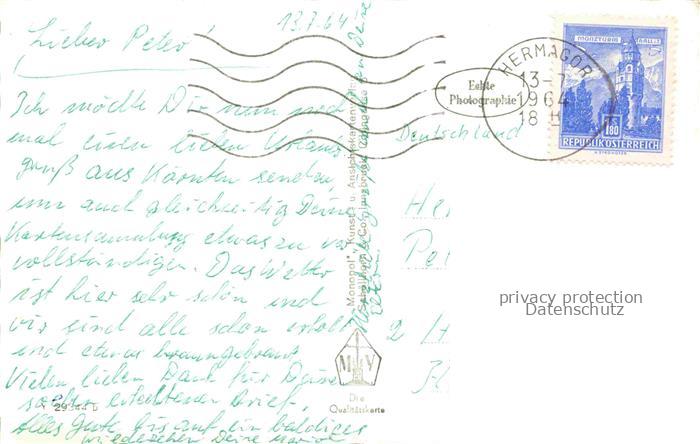 13.7.64
Lieber Peter!
Ich möchte Dir nun noch
mal einen lieben Urlaubs
gruß aus Kärnten senden,
um auch gleichzeitig Deine
Kartensammlung etwas zu ver
vollständigen. Das Wetter
ist hier sehr schön und
wir sind alle schon erholt
und etwas braungebrannt
Vielen lieben Dank für Deine
Brief,
Alles Gute bis auf ein baldiges
Wiedersehen Deine
29344 D
"Monopol", Kunst- u. Ansichtskarten-
M Y
Die
Qualitätskarte
Echte
Photographie
HERMAGOR
13-7
1964
18
MÜNZTURM HALL i.T.
1.80
REPUBLIK ÖSTERREICH
Deutschland
Pe
2
privacy protection
Datenschutz